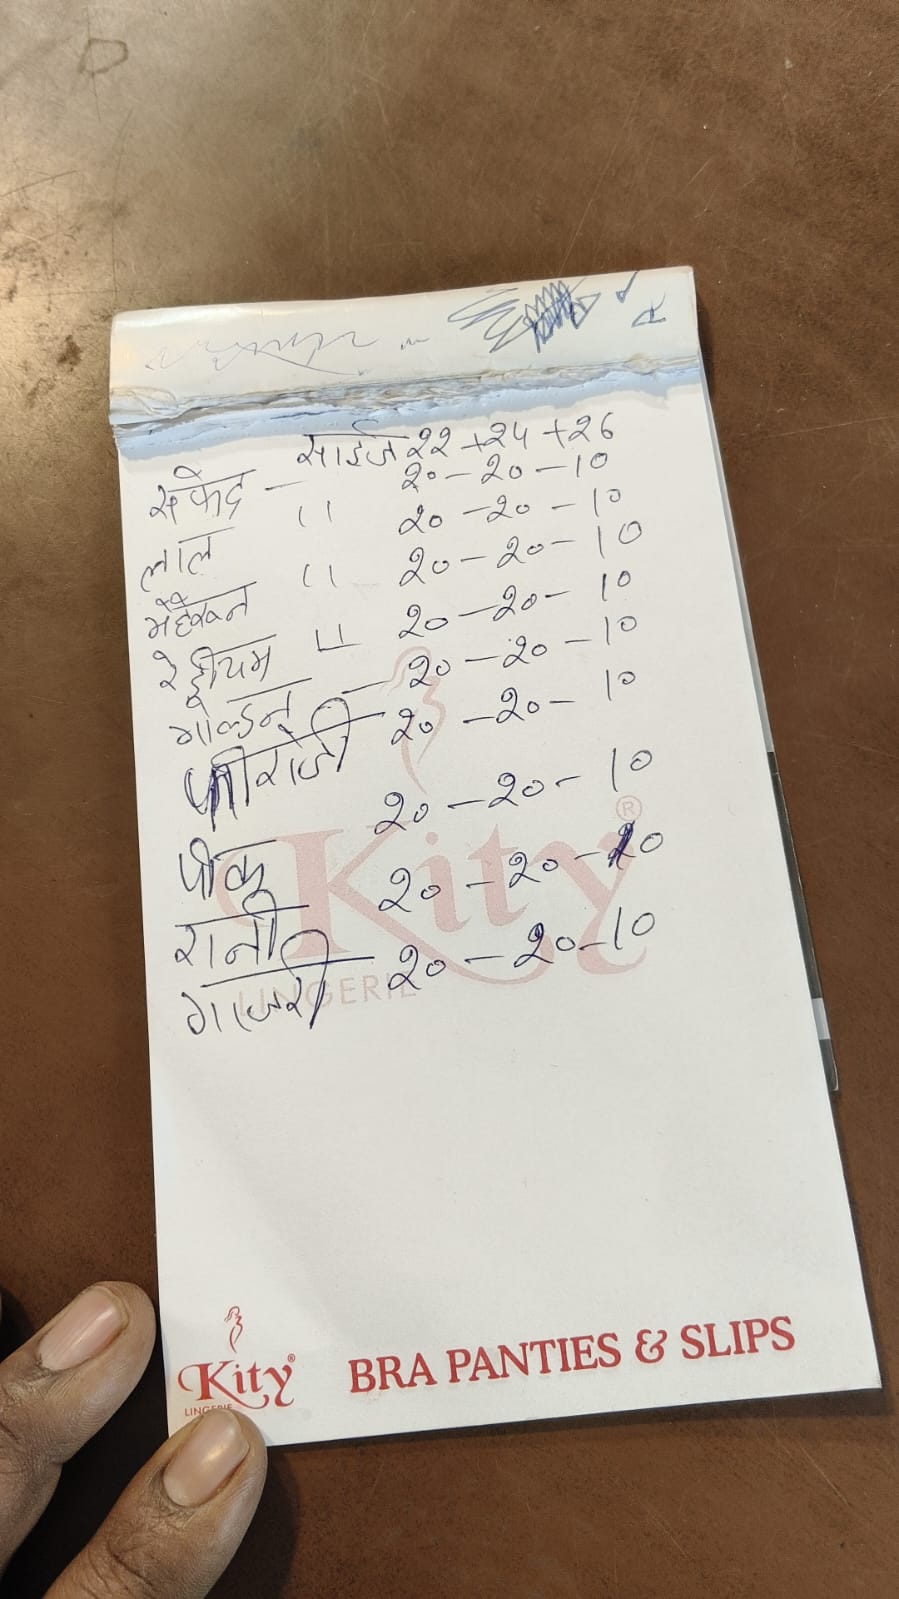 साईज 22 + 24 + 26
सफेद — 20 - 20 - 10
लाल " 20 - 20 - 10
मेहरून " 20 - 20 - 10
रेड्डीयम " 20 - 20 - 10
गोल्डन — 20 - 20 - 10
फीरोजी 20 - 20 - 10
पीक 20 - 20 - 10
रानी 20 - 20 - 10
गाजरी 20 - 20 - 10
Kity®
LINGERIE
Kity®
LINGERIE
BRA PANTIES & SLIPS